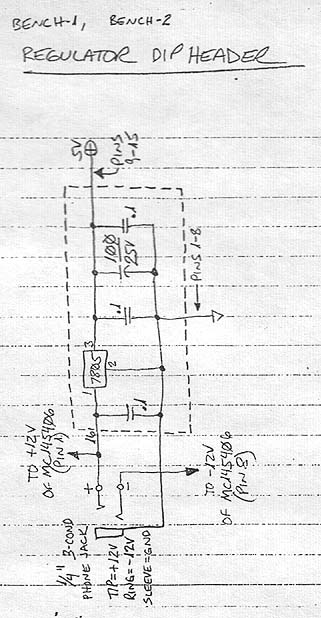 BENCH-1, BENCH-2
REGULATOR DIP HEADER
5V
PINS
9-15
.1
100
25V
.1
PINS 1-8
3
7805
2
1
.1
16
TO +12V
OF MC145406
(PIN 1)
+
-
TO -12V
OF MC145406
(PIN 8)
1/4" 3-COND
PHONE JACK
TIP=+12V
RING=-12V
SLEEVE=GND